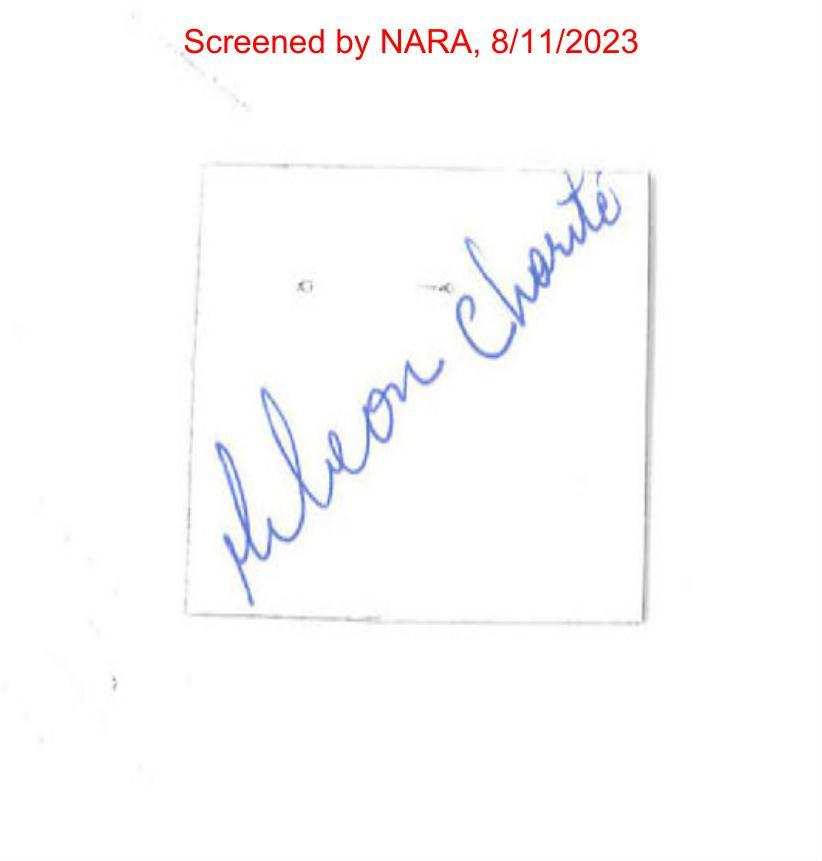 Screened by NARA, 8/11/2023
Charité